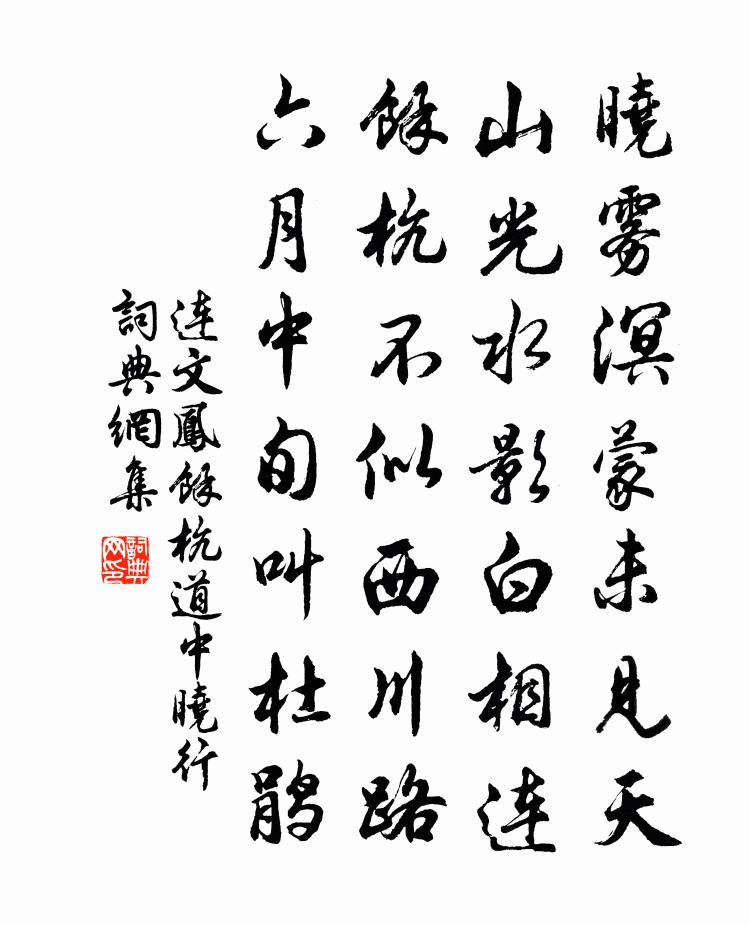 曉雾溟蒙未見天
山光水影白相連
餘杭不似西川路
六月中旬叫杜鹃
连文鳳餘杭道中曉行
詞典網集
詞典网印